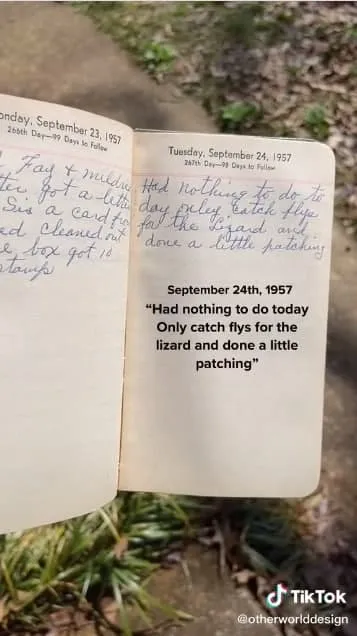 onday, September 23, 1957
266th Day—99 Days to Follow
Fay & mildre
ter got a lette
Sis a card fro
ed cleaned out
e box got 10
stamp
Tuesday, September 24, 1957
267th Day—98 Days to Follow
Had nothing to do to
day only catch flys
for the Lizard and
done a little patching
September 24th, 1957
“Had nothing to do today
Only catch flys for the
lizard and done a little
patching”
TikTok
@otherworlddesign